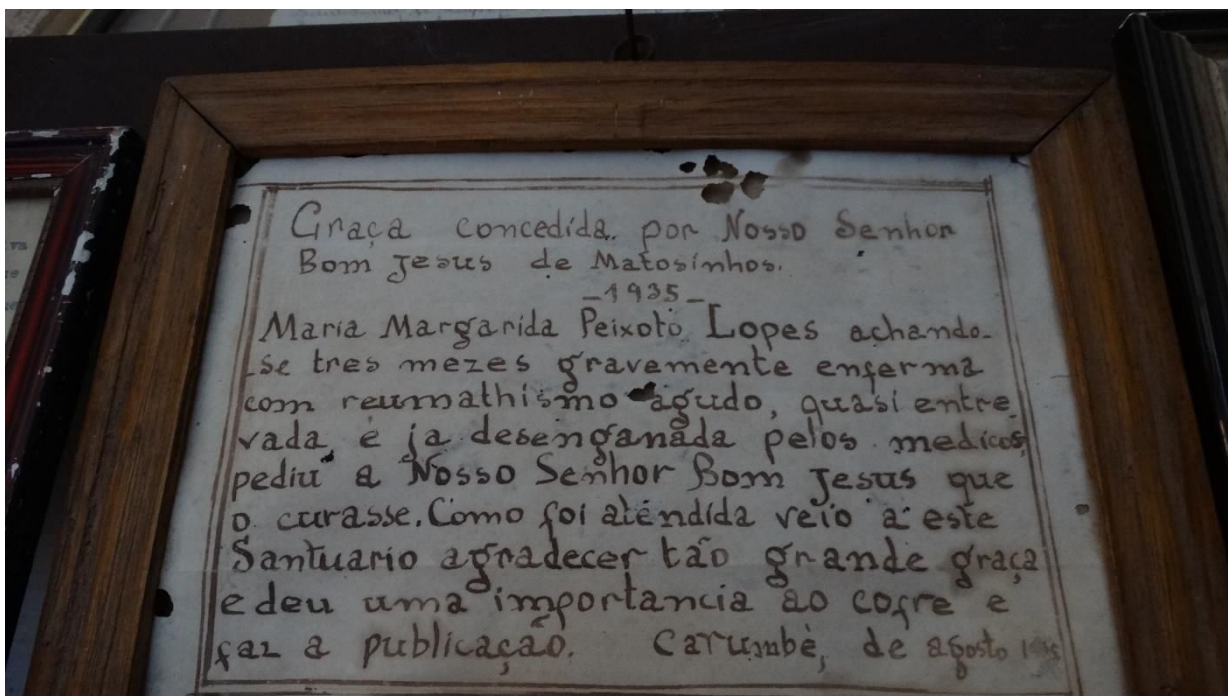 Graça concedida por Nosso Senhor
Bom Jesus de Matosinhos.
-1935-
Maria Margarida Peixoto Lopes achando-
-se tres mezes gravemente enferma
com reumathismo agudo, quasi entre
vada e ja desenganada pelos medicos,
pediu a Nosso Senhor Bom Jesus que
o curasse. Como foi atendida veio a este
Santuario agradecer tão grande graça
e deu uma importancia ao cofre e
faz a publicação. Carumbè, de agosto